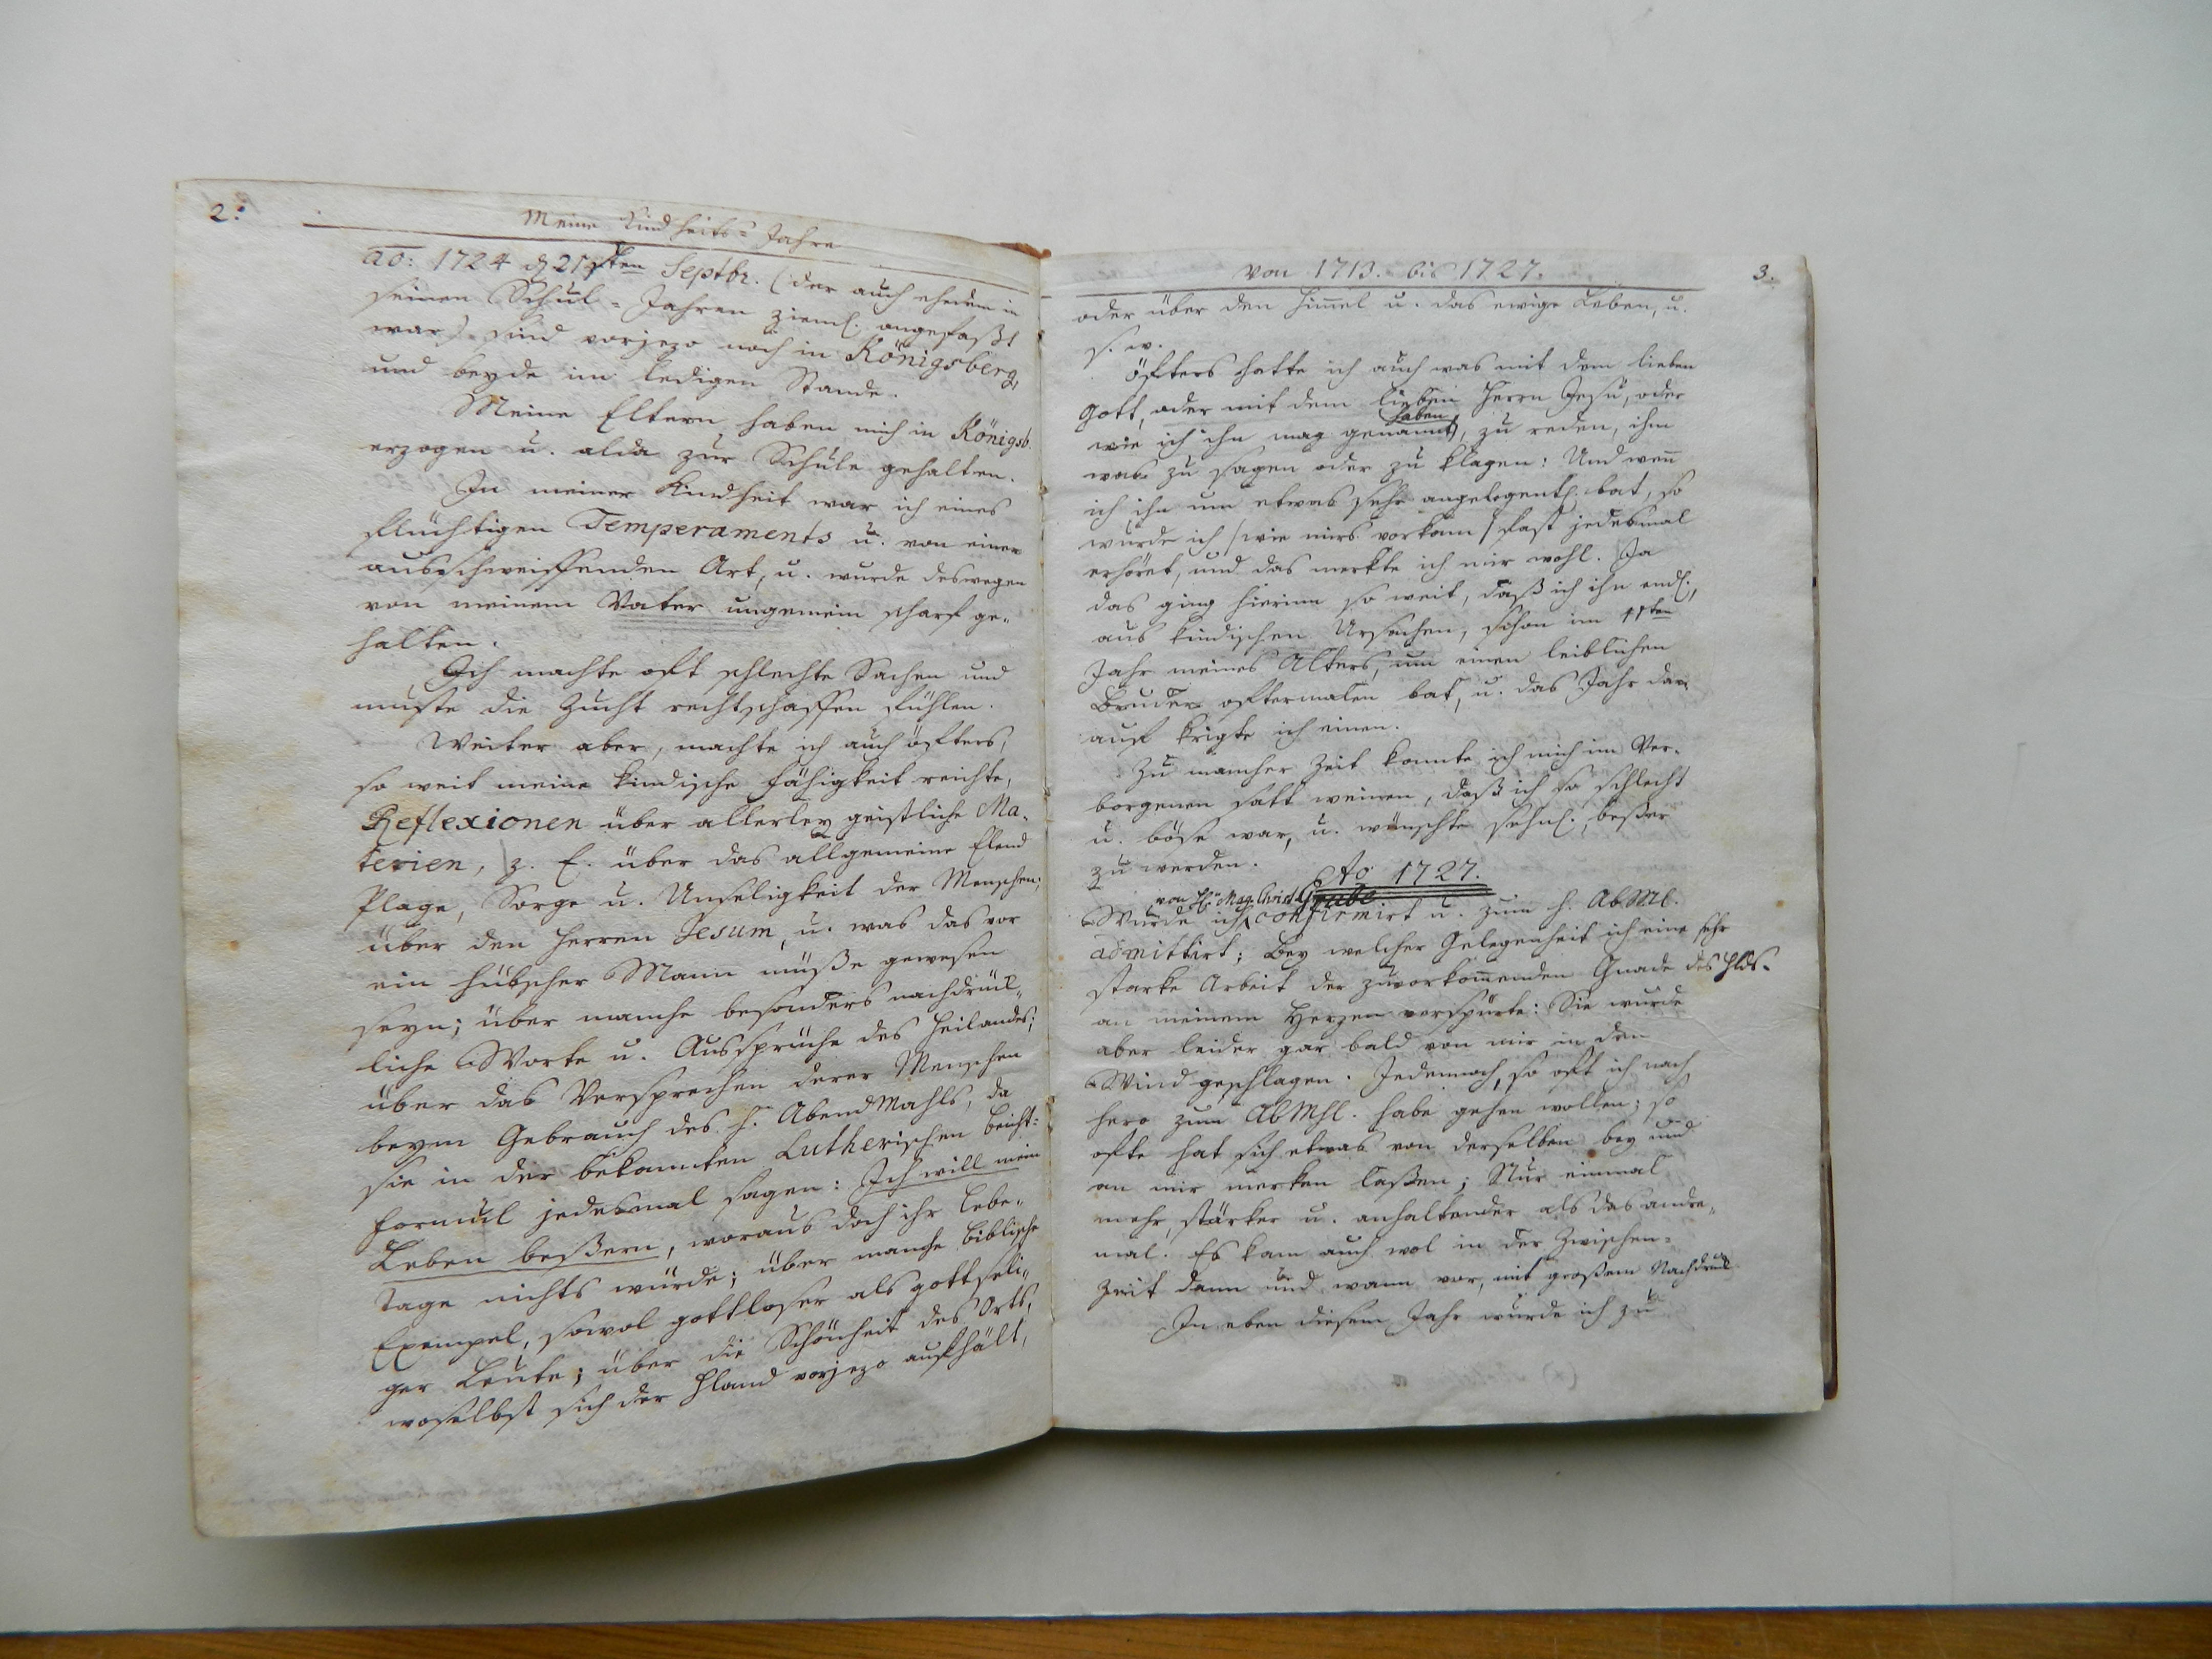 2.
Meine Kindheits-Jahre
ao: 1724 d 21sten Septbr. (der auch ehedem in
seinen Schul-Jahren zieml. angefaßt
war) sind vorjezo noch in Königsberg,
und beyde im ledigen Stande.
Meine Eltern haben mich in Königsb.
erzogen u. alda zur Schule gehalten.
In meiner Kindheit war ich eines
flüchtigen Temperaments u. von einer
ausschweiffenden Art, u. wurde deswegen
von meinem Vater ungemein scharf ge-
halten.
Ich machte oft schlechte Sachen und
muste die Zucht rechtschaffen fühlen.
Weiter aber, machte ich auch öfters,
so weit meine kindische Fähigkeit reichte,
Reflexionen über allerley geistliche Ma-
terien, z. E. über das allgemeine Elend
Plage, Sorge u. Unseligkeit der Menschen;
über den Herren Jesum, u. was das vor
ein hübscher Mann müße gewesen
seyn; über manche besonders nachdrük-
liche Worte u. Aussprüche des Heilandes;
über das Versprechen derer Menschen
beym Gebrauch des h. AbendMahls, da
sie in der bekannten Lutherischen Beicht-
formul jedesmal sagen: Ich will mein
Leben beßern, woraus doch ihr Lebe-
Tage nichts würde; über manche biblische
Exempel, sowol gottloser als gottseli-
ger Leute; über die Schönheit des Orts,
woselbst sich der Hland vorjezo aufhält,
von 1713. bis 1727.
3.
oder über den Himmel u. das ewige Leben, u.
s. w.
Öfters hatte ich auch was mit dem lieben
Gott, oder mit dem lieben Herrn Jesu, oder
haben
wie ich ihn mag genannt, zu reden, ihm
was zu sagen oder zu klagen: Und wenn
ich ihn um etwas sehr angelegentl. bat, so
wurde ich /wie mirs vorkam/ fast jedesmal
erhöret, und das merkte ich mir wohl. Ja
das ging hierinn so weit, daß ich ihn endl.,
aus kindischen Ursachen, schon im 11ten
Jahr meines Alters, um einen leiblichen
Bruder oftermalen bat, u. das Jahr dar-
auf krigte ich einen.
Zu mancher Zeit konnte ich mich im Ver-
borgenen satt weinen, daß ich so schlecht
u. böse war, u. wünschte sehnl., beßer
zu werden.
Ao 1727.
von Hn Mag. Christ Grube
Wurde ich confirmirt u. zum h. AbMl.
admittirt; Bey welcher Gelegenheit ich eine sehr
starke Arbeit der zuvorkommenden Gnade des Hlds.
an meinem Herzen verspürte: Sie wurde
aber leider gar bald von mir in den
Wind geschlagen. Jedennoch, so oft ich nach
hero zum AbMhl. habe gehen wollen; so
ofte hat sich etwas von derselben bey und
an mir merken laßen; Nur einmal
mehr, stärker u. anhaltender als das andre-
mal. Es kam auch wol in der Zwischen-
Zeit dann und wann vor, mit großem Nachdruk
In eben diesem Jahr wurde ich zu